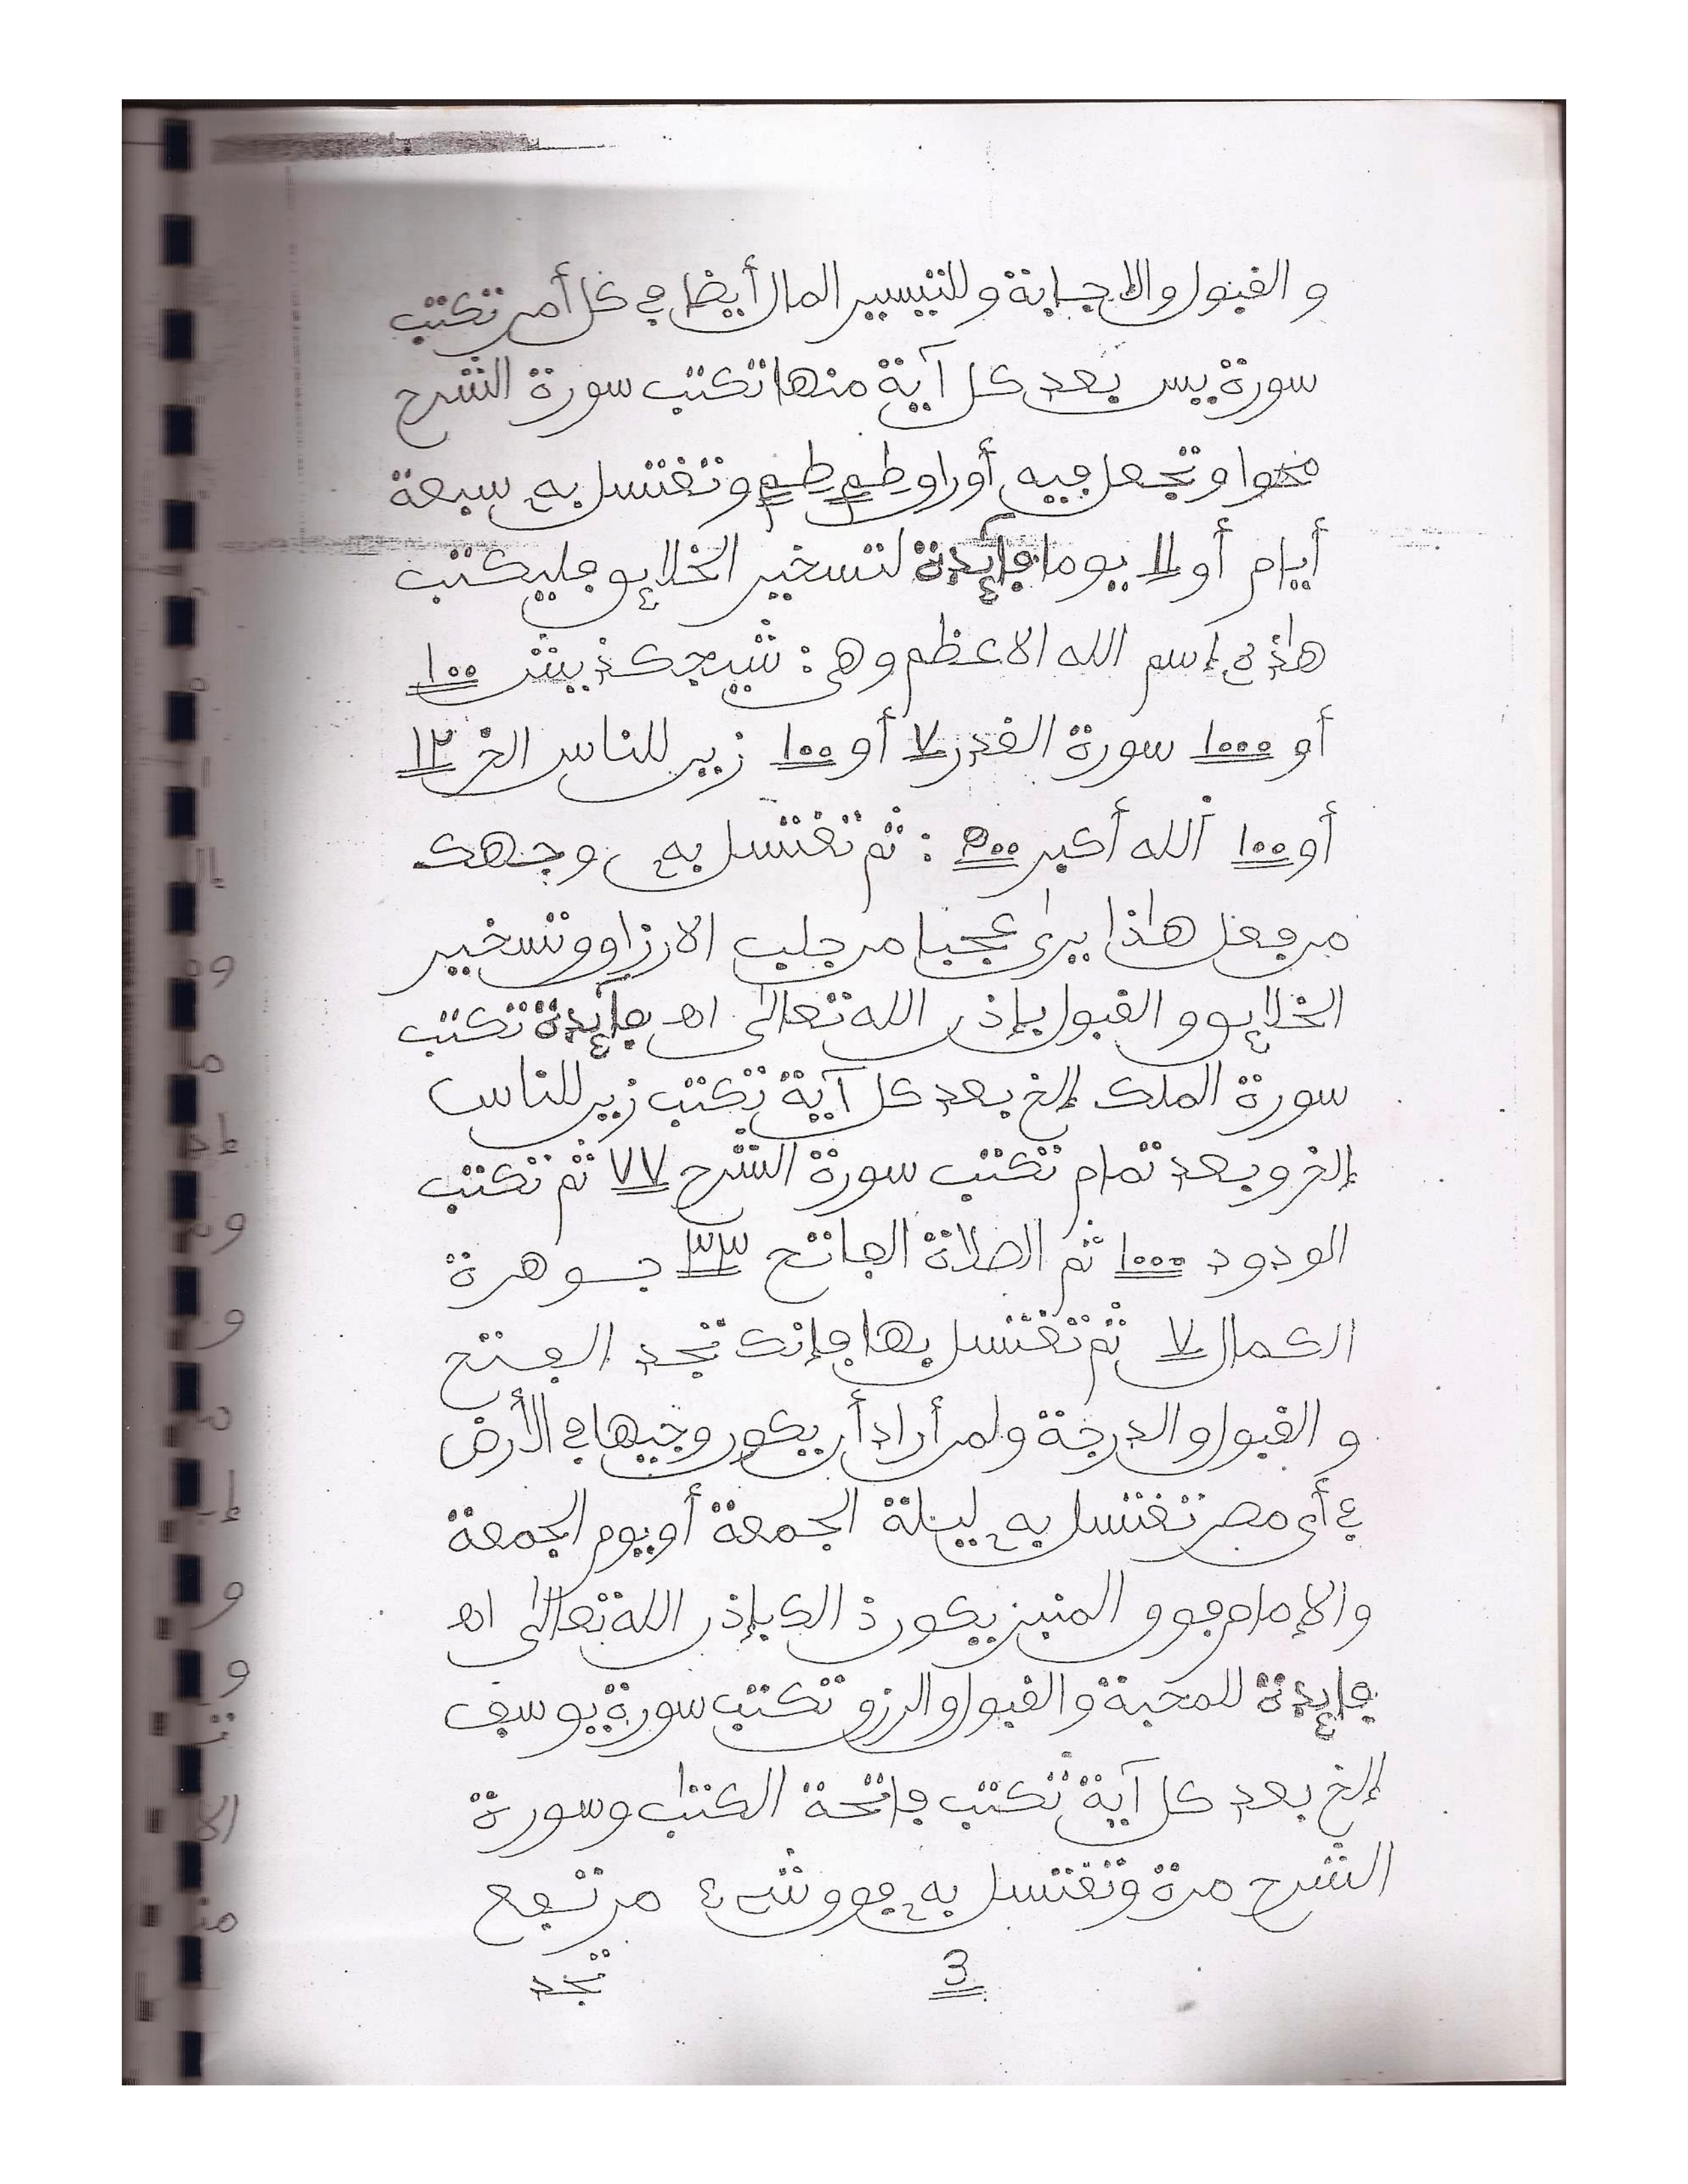 و القبول والاجابة وللتيسير المال أيضا في كل أمر تكتب
سورة يس بعد كل آية منها تكتب سورة الشرح
محوا وتجعل فيه أوراق طم طم وتغتسل به سبعة
أيام أو يوما فائدة لتسخير الخلائق فليكتب
هذه إسم الله الاعظم وهي : ١٠٠
أو ١٠٠٠ سورة القدر ٧ أو ١٠٠ زين للناس الخ ١٢
أو ١٠٠ ألله أكبر ٥٠٠ : ثم تغتسل به وجهك
من فعل هذا يرى عجبا من جلب الارزاق وتسخير
الخلائق و القبول بإذن الله تعالى اه فائدة تكتب
سورة الملك إلخ بعد كل آية تكتب زين للناس
إلخ وبعد تمام تكتب سورة الشرح ٧٧ ثم تكتب
الودود ١٠٠٠ ثم الصلاة الفاتح ٣٣ جوهرة
الكمال ٧ ثم تغتسل بها فإنك تجد الفتح
و القبول والدرجة ولمن أراد أن يكون وجيها في الأرض
ء أي مصر تغتسل به ليلة الجمعة أو يوم الجمعة
والإمام فوق المنبر يكون ذالك بإذن الله تعالى اه
فائدة للمحبة والقبول والرزق تكتب سورة يوسف
إلخ بعد كل آية تكتب فاتحة الكتاب وسورة
الشرح مرة وتغتسل به فوق شيء مرتفع
3 تجد